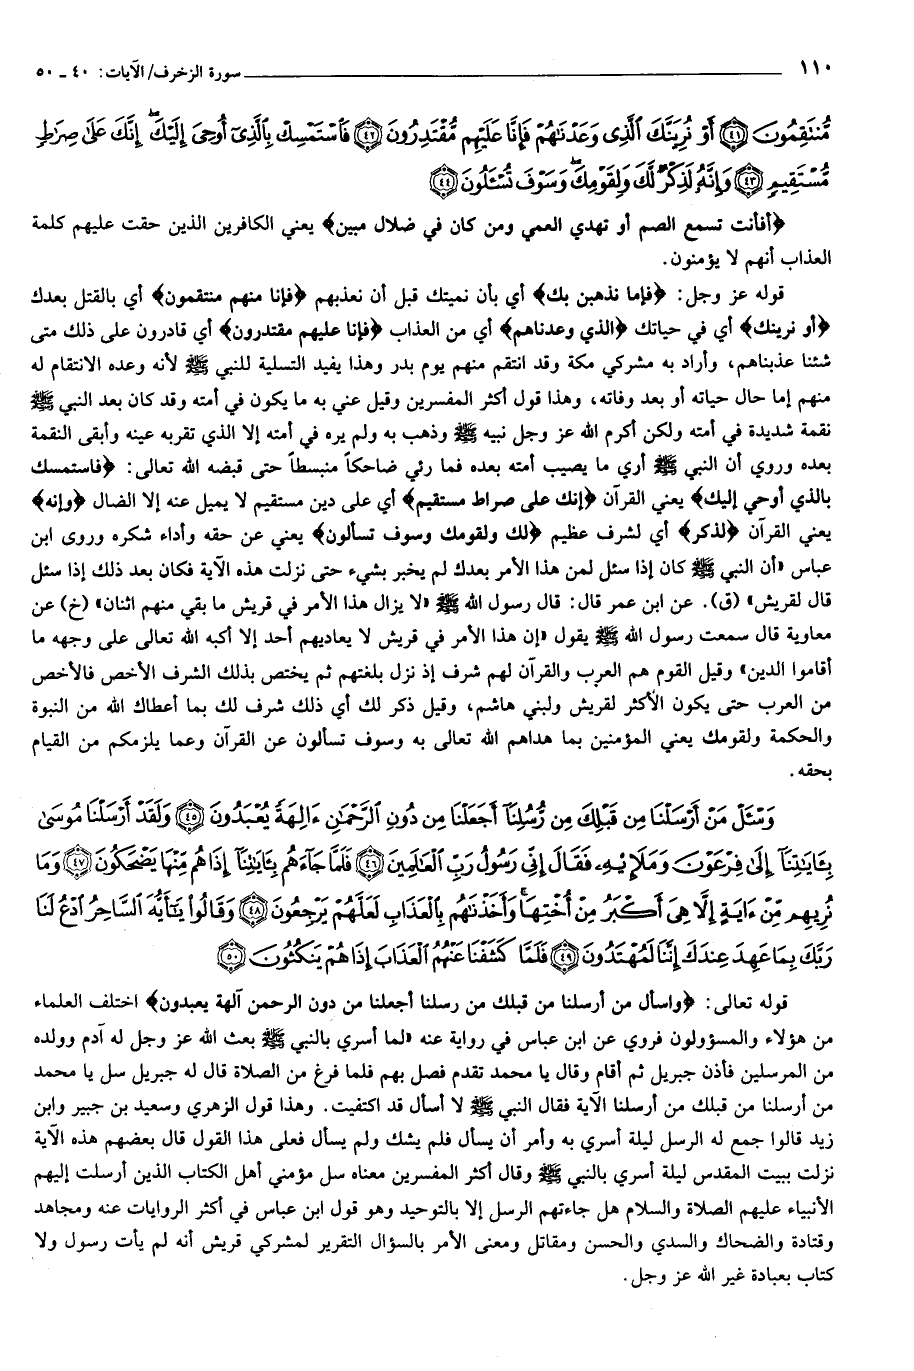 ١١٠ ــــــــــــــــــــــــــــــــــــــــــــــــــــــــــ سورة الزخرف/ الآيات: ٤٠ ـ ٥٠
مُّنتَقِمُونَ ﴿٤١﴾ أَوْ نُرِيَنَّكَ ٱلَّذِى وَعَدْنَٰهُمْ فَإِنَّا عَلَيْهِم مُّقْتَدِرُونَ ﴿٤٢﴾ فَٱسْتَمْسِكْ بِٱلَّذِىٓ أُوحِىَ إِلَيْكَ ۖ إِنَّكَ عَلَىٰ صِرَٰطٍ
مُّسْتَقِيمٍ ﴿٤٣﴾ وَإِنَّهُۥ لَذِكْرٌ لَّكَ وَلِقَوْمِكَ ۖ وَسَوْفَ تُسْـَٔلُونَ ﴿٤٤﴾
﴿أفأنت تسمع الصم أو تهدي العمي ومن كان في ضلال مبين﴾ يعني الكافرين الذين حقت عليهم كلمة
العذاب أنهم لا يؤمنون.
قوله عز وجل: ﴿فإما نذهبن بك﴾ أي بأن نميتك قبل أن نعذبهم ﴿فإنا منهم منتقمون﴾ أي بالقتل بعدك
﴿أو نرينك﴾ أي في حياتك ﴿الذي وعدناهم﴾ أي من العذاب ﴿فإنا عليهم مقتدرون﴾ أي قادرون على ذلك متى
شئنا عذبناهم، وأراد به مشركي مكة وقد انتقم منهم يوم بدر وهذا يفيد التسلية للنبي ﷺ لأنه وعده الانتقام له
منهم إما حال حياته أو بعد وفاته، وهذا قول أكثر المفسرين وقيل عني به ما يكون في أمته وقد كان بعد النبي ﷺ
نقمة شديدة في أمته ولكن أكرم الله عز وجل نبيه ﷺ وذهب به ولم يره في أمته إلا الذي تقربه عينه وأبقى النقمة
بعده وروي أن النبي ﷺ أري ما يصيب أمته بعده فما رئي ضاحكاً منبسطاً حتى قبضه الله تعالى: ﴿فاستمسك
بالذي أوحي إليك﴾ يعني القرآن ﴿إنك على صراط مستقيم﴾ أي على دين مستقيم لا يميل عنه إلا الضال ﴿وإنه﴾
يعني القرآن ﴿لذكر﴾ أي لشرف عظيم ﴿لك ولقومك وسوف تسألون﴾ يعني عن حقه وأداء شكره وروى ابن
عباس «أن النبي ﷺ كان إذا سئل لمن هذا الأمر بعدك لم يخبر بشيء حتى نزلت هذه الآية فكان بعد ذلك إذا سئل
قال لقريش» (ق). عن ابن عمر قال: قال رسول الله ﷺ «لا يزال هذا الأمر في قريش ما بقي منهم اثنان» (خ) عن
معاوية قال سمعت رسول الله ﷺ يقول «إن هذا الأمر في قريش لا يعاديهم أحد إلا أكبه الله تعالى على وجهه ما
أقاموا الدين» وقيل القوم هم العرب والقرآن لهم شرف إذ نزل بلغتهم ثم يختص بذلك الشرف الأخص فالأخص
من العرب حتى يكون الأكثر لقريش ولبني هاشم، وقيل ذكر لك أي ذلك شرف لك بما أعطاك الله من النبوة
والحكمة ولقومك يعني المؤمنين بما هداهم الله تعالى به وسوف تسألون عن القرآن وعما يلزمكم من القيام
بحقه.
وَسْـَٔلْ مَنْ أَرْسَلْنَا مِن قَبْلِكَ مِن رُّسُلِنَآ أَجَعَلْنَا مِن دُونِ ٱلرَّحْمَٰنِ ءَالِهَةً يُعْبَدُونَ ﴿٤٥﴾ وَلَقَدْ أَرْسَلْنَا مُوسَىٰ
بِـَٔايَٰتِنَآ إِلَىٰ فِرْعَوْنَ وَمَلَإِي۟هِۦ فَقَالَ إِنِّى رَسُولُ رَبِّ ٱلْعَٰلَمِينَ ﴿٤٦﴾ فَلَمَّا جَآءَهُم بِـَٔايَٰتِنَآ إِذَا هُم مِّنْهَا يَضْحَكُونَ ﴿٤٧﴾ وَمَا
نُرِيهِم مِّنْ ءَايَةٍ إِلَّا هِىَ أَكْبَرُ مِنْ أُخْتِهَا ۖ وَأَخَذْنَٰهُم بِٱلْعَذَابِ لَعَلَّهُمْ يَرْجِعُونَ ﴿٤٨﴾ وَقَالُوا۟ يَٰٓأَيُّهَ ٱلسَّاحِرُ ٱدْعُ لَنَا
رَبَّكَ بِمَا عَهِدَ عِندَكَ إِنَّنَا لَمُهْتَدُونَ ﴿٤٩﴾ فَلَمَّا كَشَفْنَا عَنْهُمُ ٱلْعَذَابَ إِذَا هُمْ يَنكُثُونَ ﴿٥٠﴾
قوله تعالى: ﴿واسأل من أرسلنا من قبلك من رسلنا أجعلنا من دون الرحمن آلهة يعبدون﴾ اختلف العلماء
من هؤلاء والمسؤولون فروي عن ابن عباس في رواية عنه «لما أسري بالنبي ﷺ بعث الله عز وجل له آدم وولده
من المرسلين فأذن جبريل ثم أقام وقال يا محمد تقدم فصل بهم فلما فرغ من الصلاة قال له جبريل سل يا محمد
من أرسلنا من قبلك من أرسلنا الآية فقال النبي ﷺ لا أسأل قد اكتفيت. وهذا قول الزهري وسعيد بن جبير وابن
زيد قالوا جمع له الرسل ليلة أسري به وأمر أن يسأل فلم يشك ولم يسأل فعلى هذا القول قال بعضهم هذه الآية
نزلت ببيت المقدس ليلة أسري بالنبي ﷺ وقال أكثر المفسرين معناه سل مؤمني أهل الكتاب الذين أرسلت إليهم
الأنبياء عليهم الصلاة والسلام هل جاءتهم الرسل إلا بالتوحيد وهو قول ابن عباس في أكثر الروايات عنه ومجاهد
وقتادة والضحاك والسدي والحسن ومقاتل ومعنى الأمر بالسؤال التقرير لمشركي قريش أنه لم يأت رسول ولا
كتاب بعبادة غير الله عز وجل.